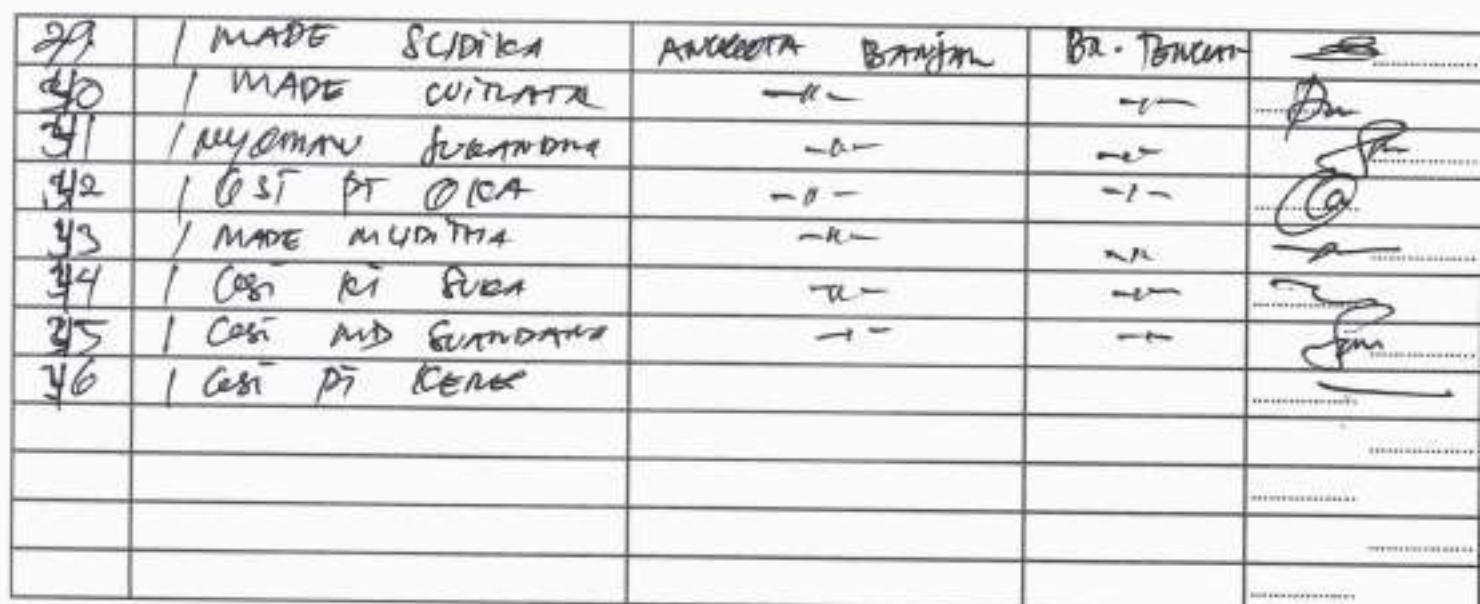 29. I MADE SUDIKA ANGGOTA BANJAR BR. TENGAH
I MADE WIRATA -"- -"-
I NYOMAN SUKANDRA -"- -"-
I GST PT OKA -"- -"-
I MADE MUDITHA -"- -"-
I GST KT SUKA -"- -"-
I GST MD SUANDANA -"- -"-
I GST PT KEREK